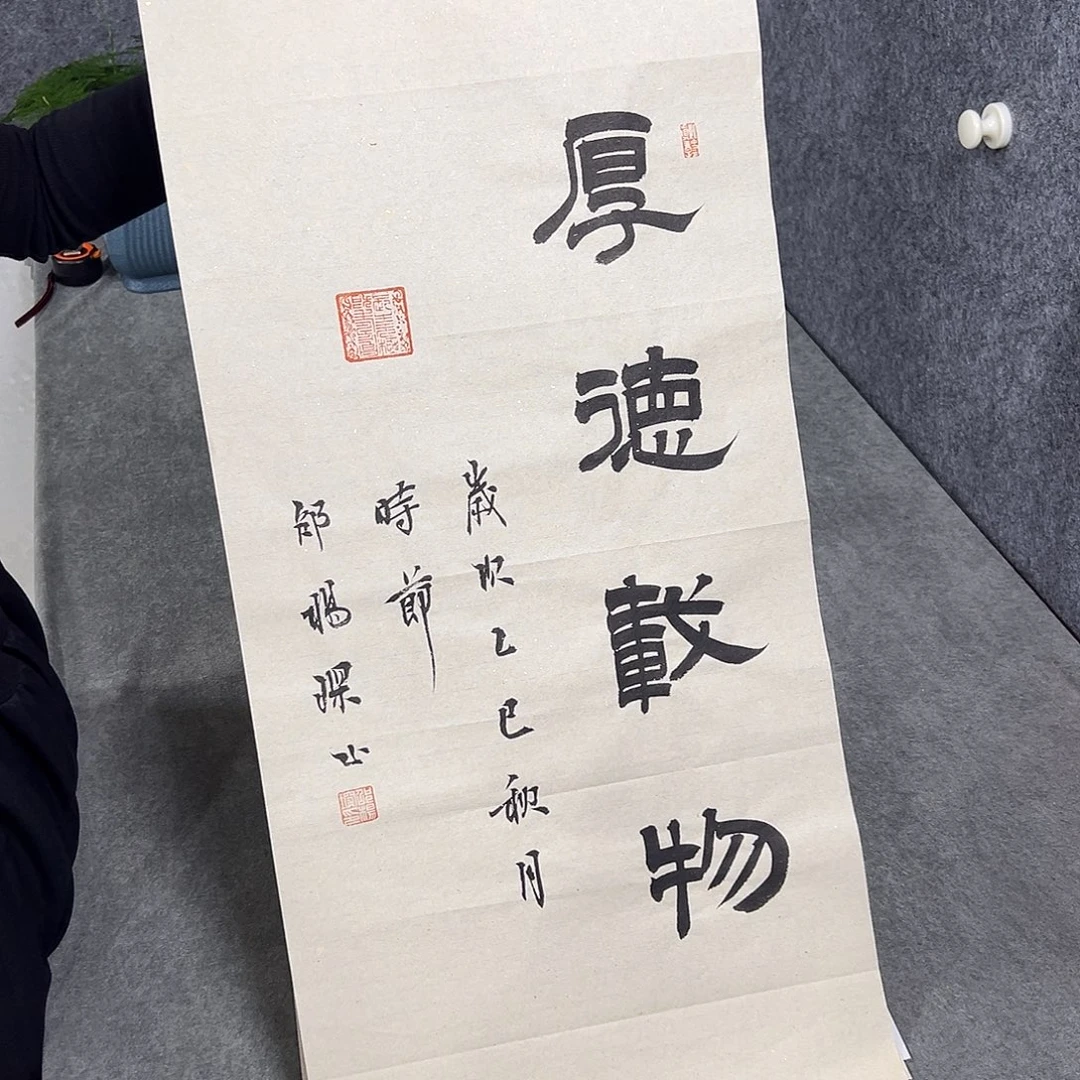 厚德載物
歲次乙巳秋月
時節
邰楊琛书